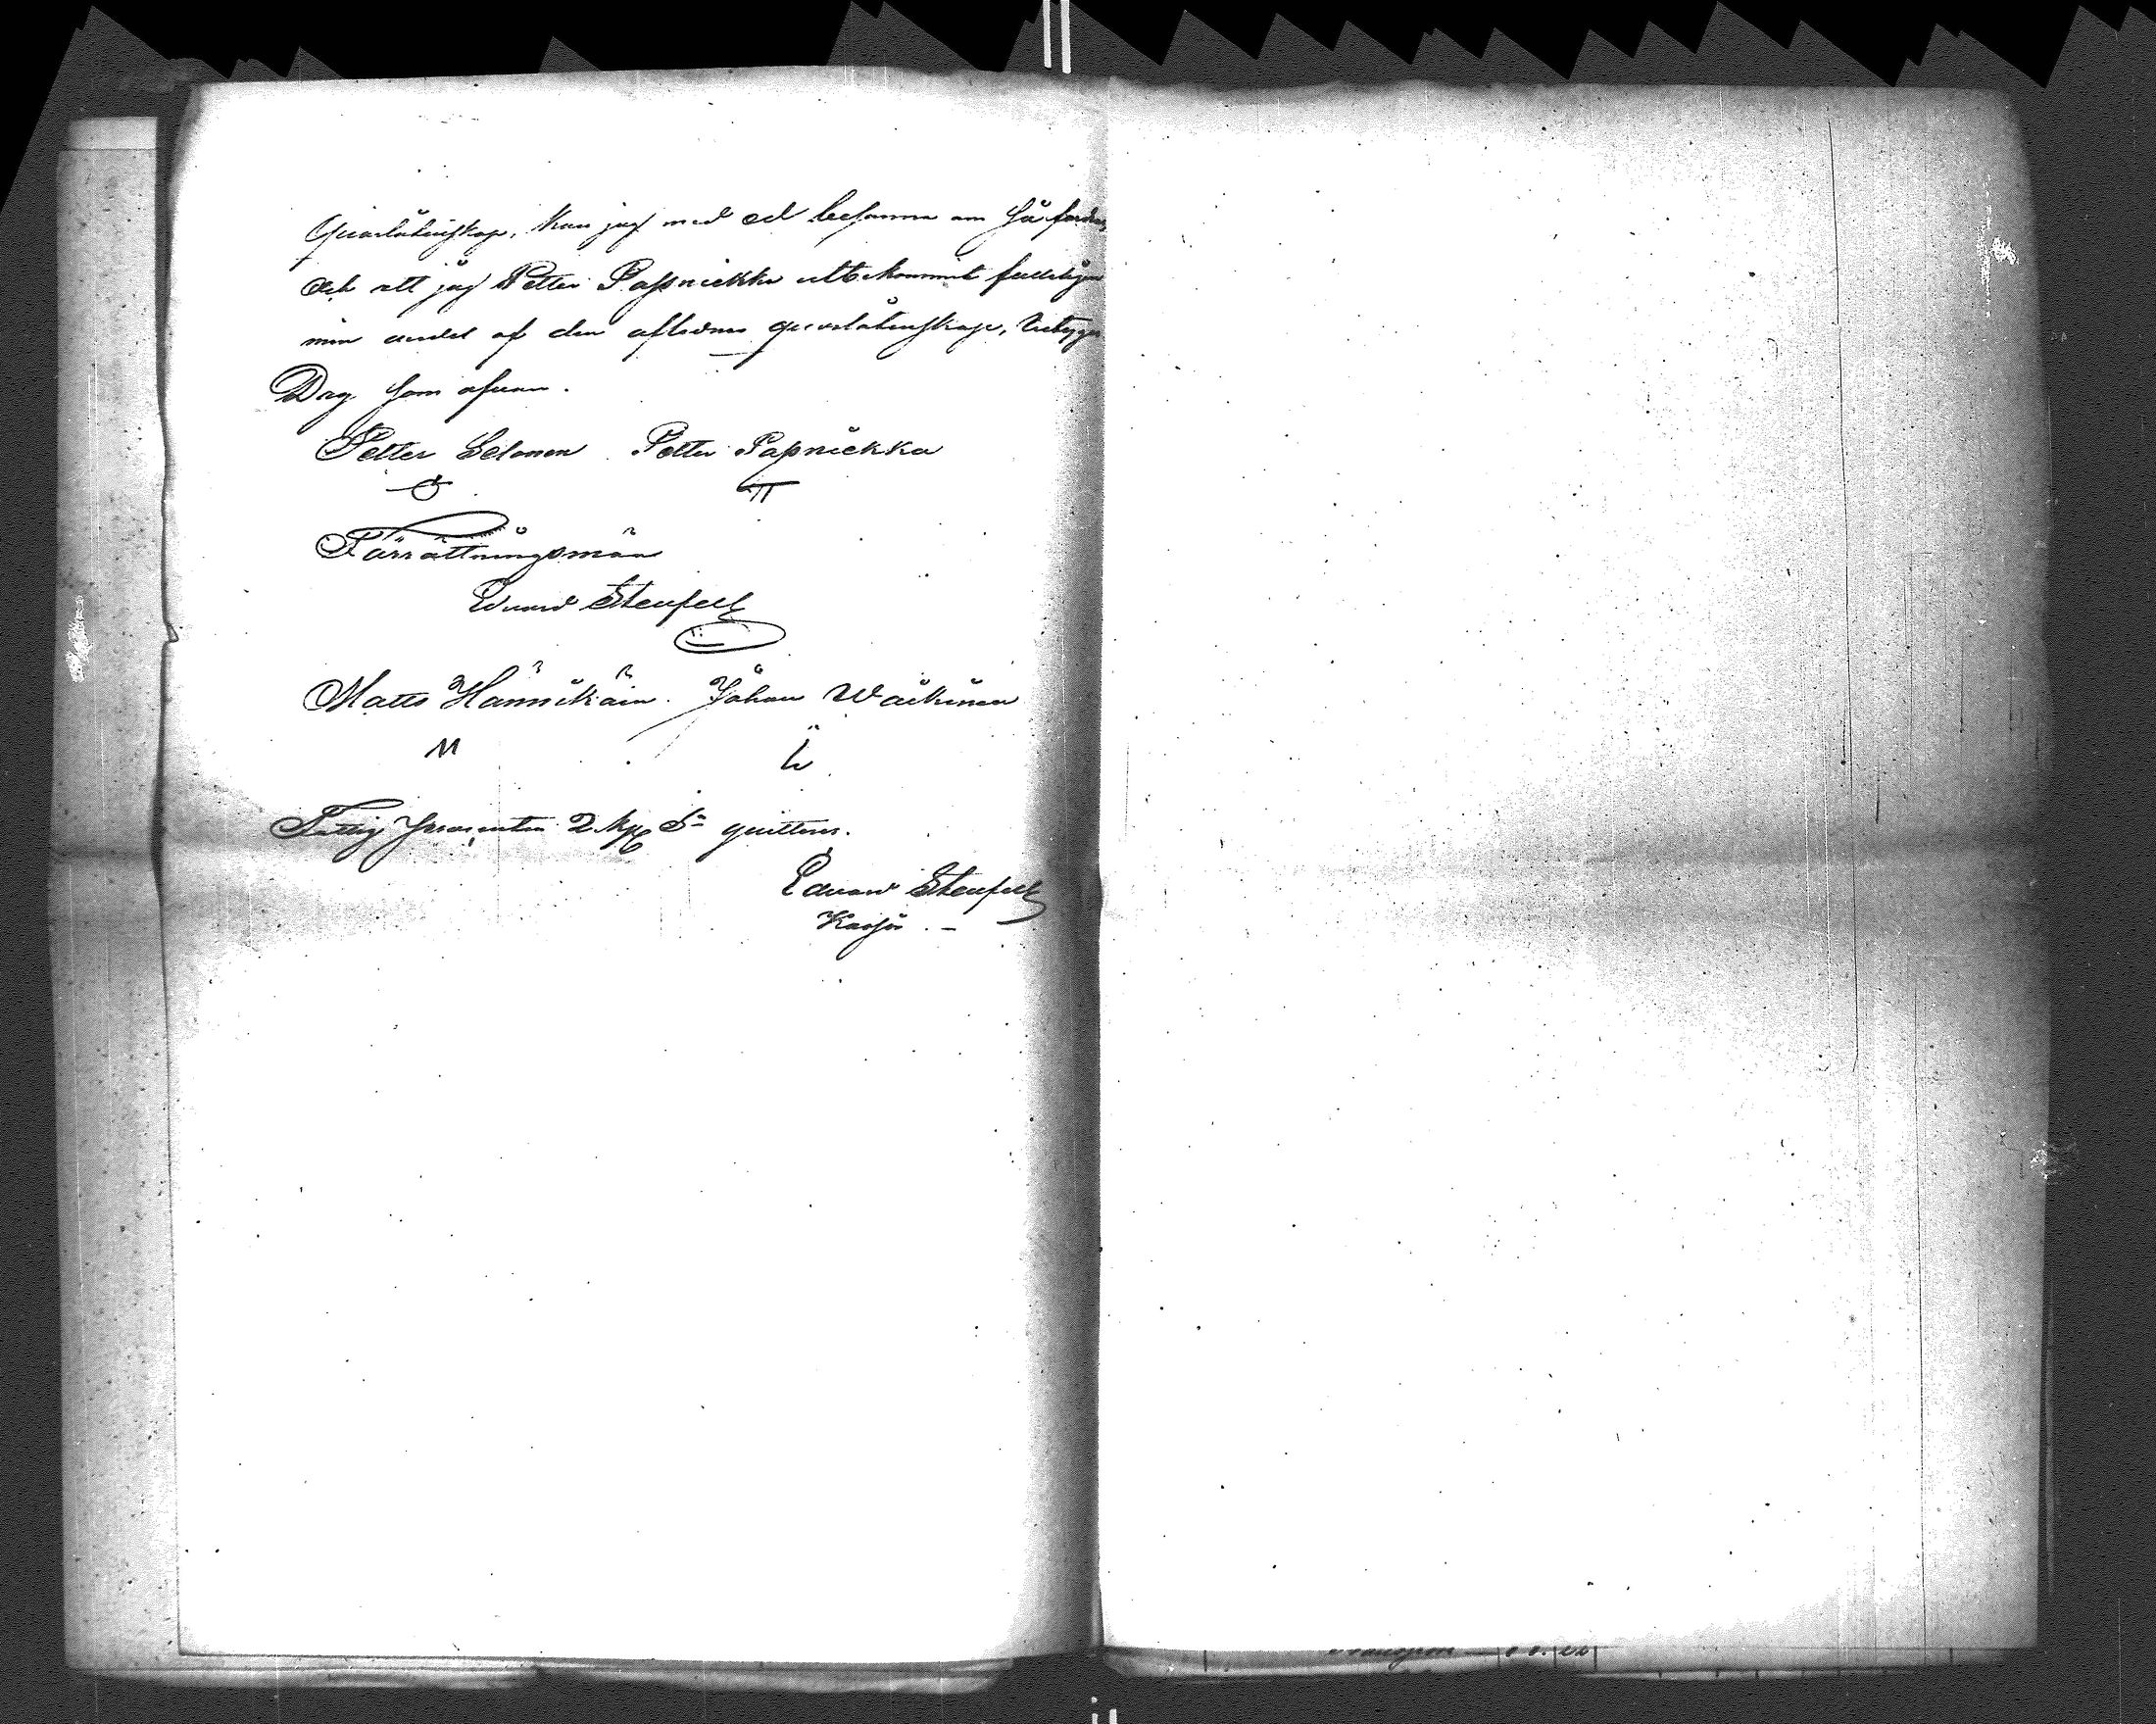 qvarlåtenskap, kan jag med ed besanna om så fordras,
Och att jag Petter Papsniekka utbekommit fullkligen
min andel af den aflednes qvarlåtenskap, betygar
Dag som ofvan.
Petter Selonen Petter Papniekka
Förrättningsmän
Eduard Stenfelt
Matts Hännikäin. Johan Wäikinen
M
Fattig procenten 2 Mk S quitteras.
Eduard Stenfelt
Kassör